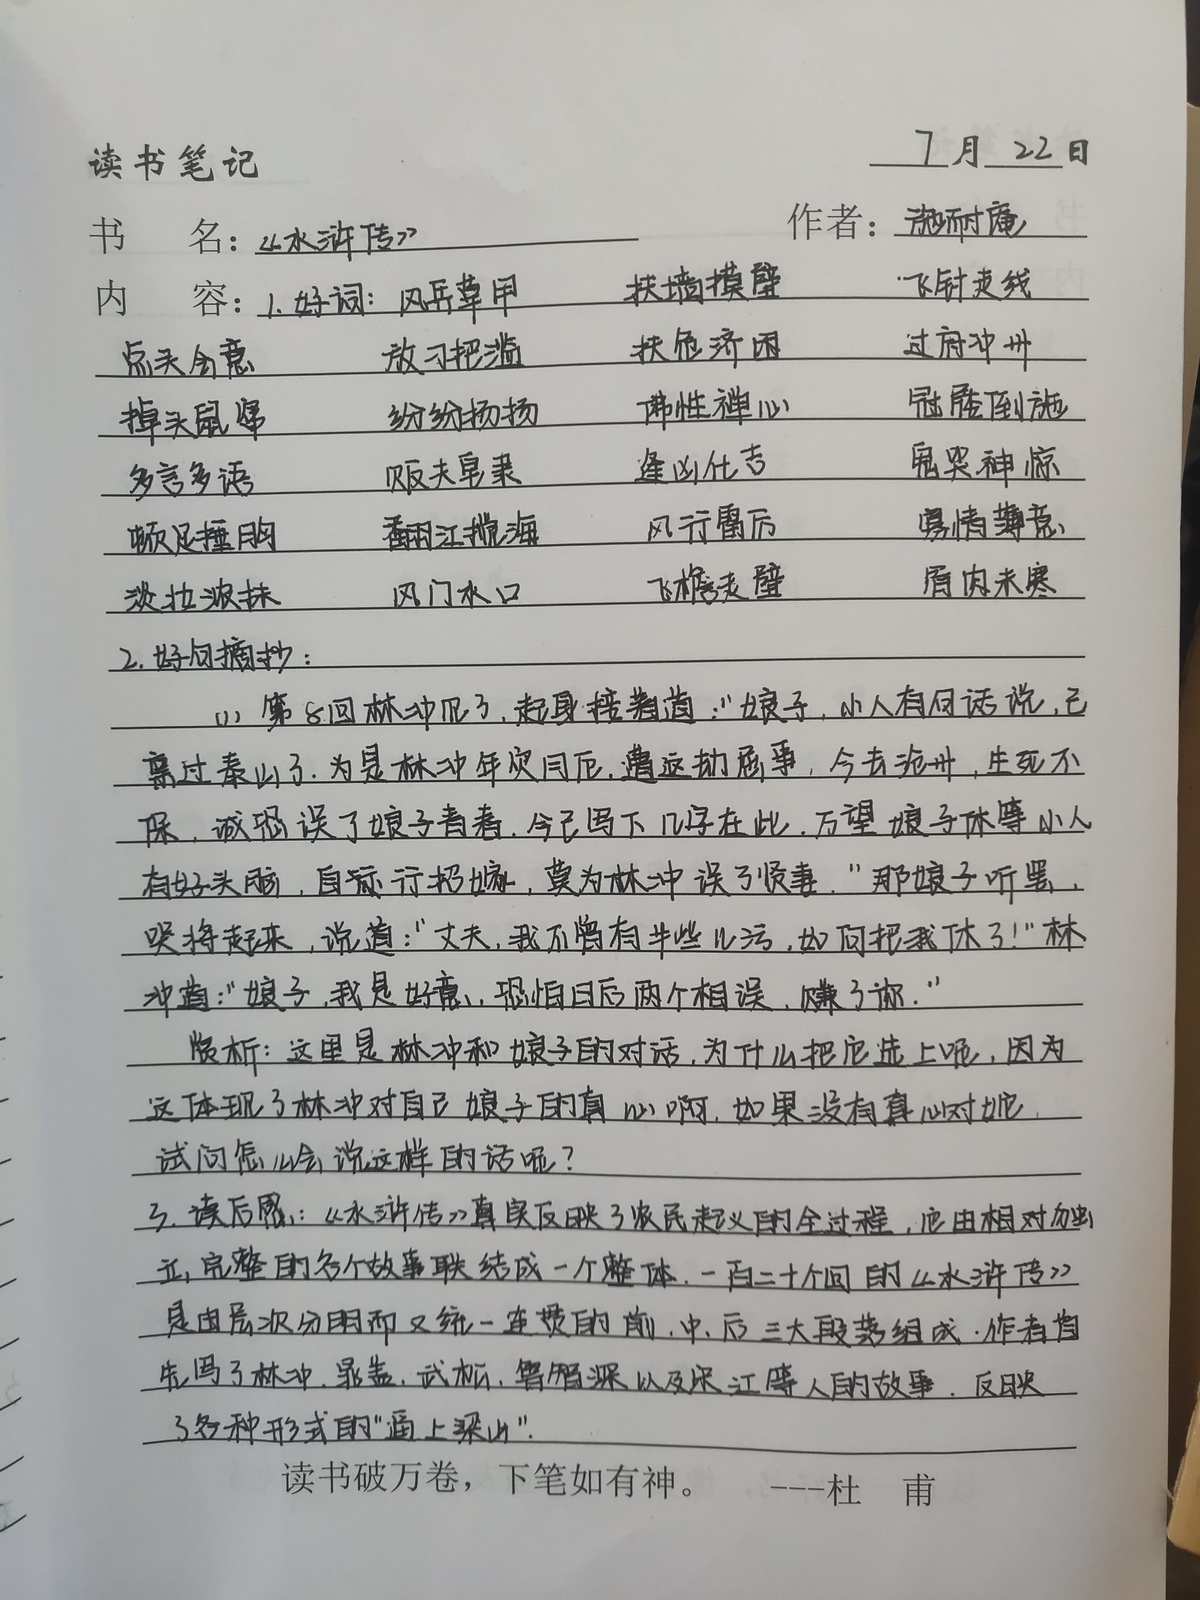 读书笔记 7月22日
书 名：《水浒传》 作者：施耐庵
内 容：1.好词：风兵草甲 扶墙摸壁 飞针走线
点头会意 放刁把滥 扶危济困 过府冲州
掉头鼠窜 纷纷扬扬 佛性禅心 冠履倒施
多言多语 贩夫皂隶 逢凶化吉 鬼哭神惊
顿足捶胸 翻江搅海 风行雷厉 寡情薄意
淡妆浓抹 风门水口 飞檐走壁 骨肉未寒
2.好句摘抄：
(1) 第8回林冲见了，起身接着道："娘子，小人有句话说，已
禀过泰山了.为是林冲年灾月厄，遭这场屈事，今去沧州，生死不
保，诚恐误了娘子青春，今已写下几字在此.万望娘子休等小人
有好头脑，自行招嫁，莫为林冲误了贤妻."那娘子听罢，
哭将起来，说道："丈夫，我不曾有半些儿污，如何把我休了!"林
冲道："娘子，我是好意，恐怕日后两个相误，赚了你."
赏析：这里是林冲和娘子的对话，为什么把它选上呢，因为
这体现了林冲对自己娘子的真心啊，如果没有真心对她，
试问怎么会说这样的话呢？
3.读后感：《水浒传》真实反映了农民起义的全过程，它由相对独
立，完整的各个故事联结成一个整体.一百二十个回的《水浒传》
是由层次分明而又统一连贯的前、中、后三大段落组成.作者首
先写了林冲、晁盖、武松、鲁智深以及宋江等人的故事，反映
了各种形式的"逼上梁山".
读书破万卷，下笔如有神。 ---杜 甫